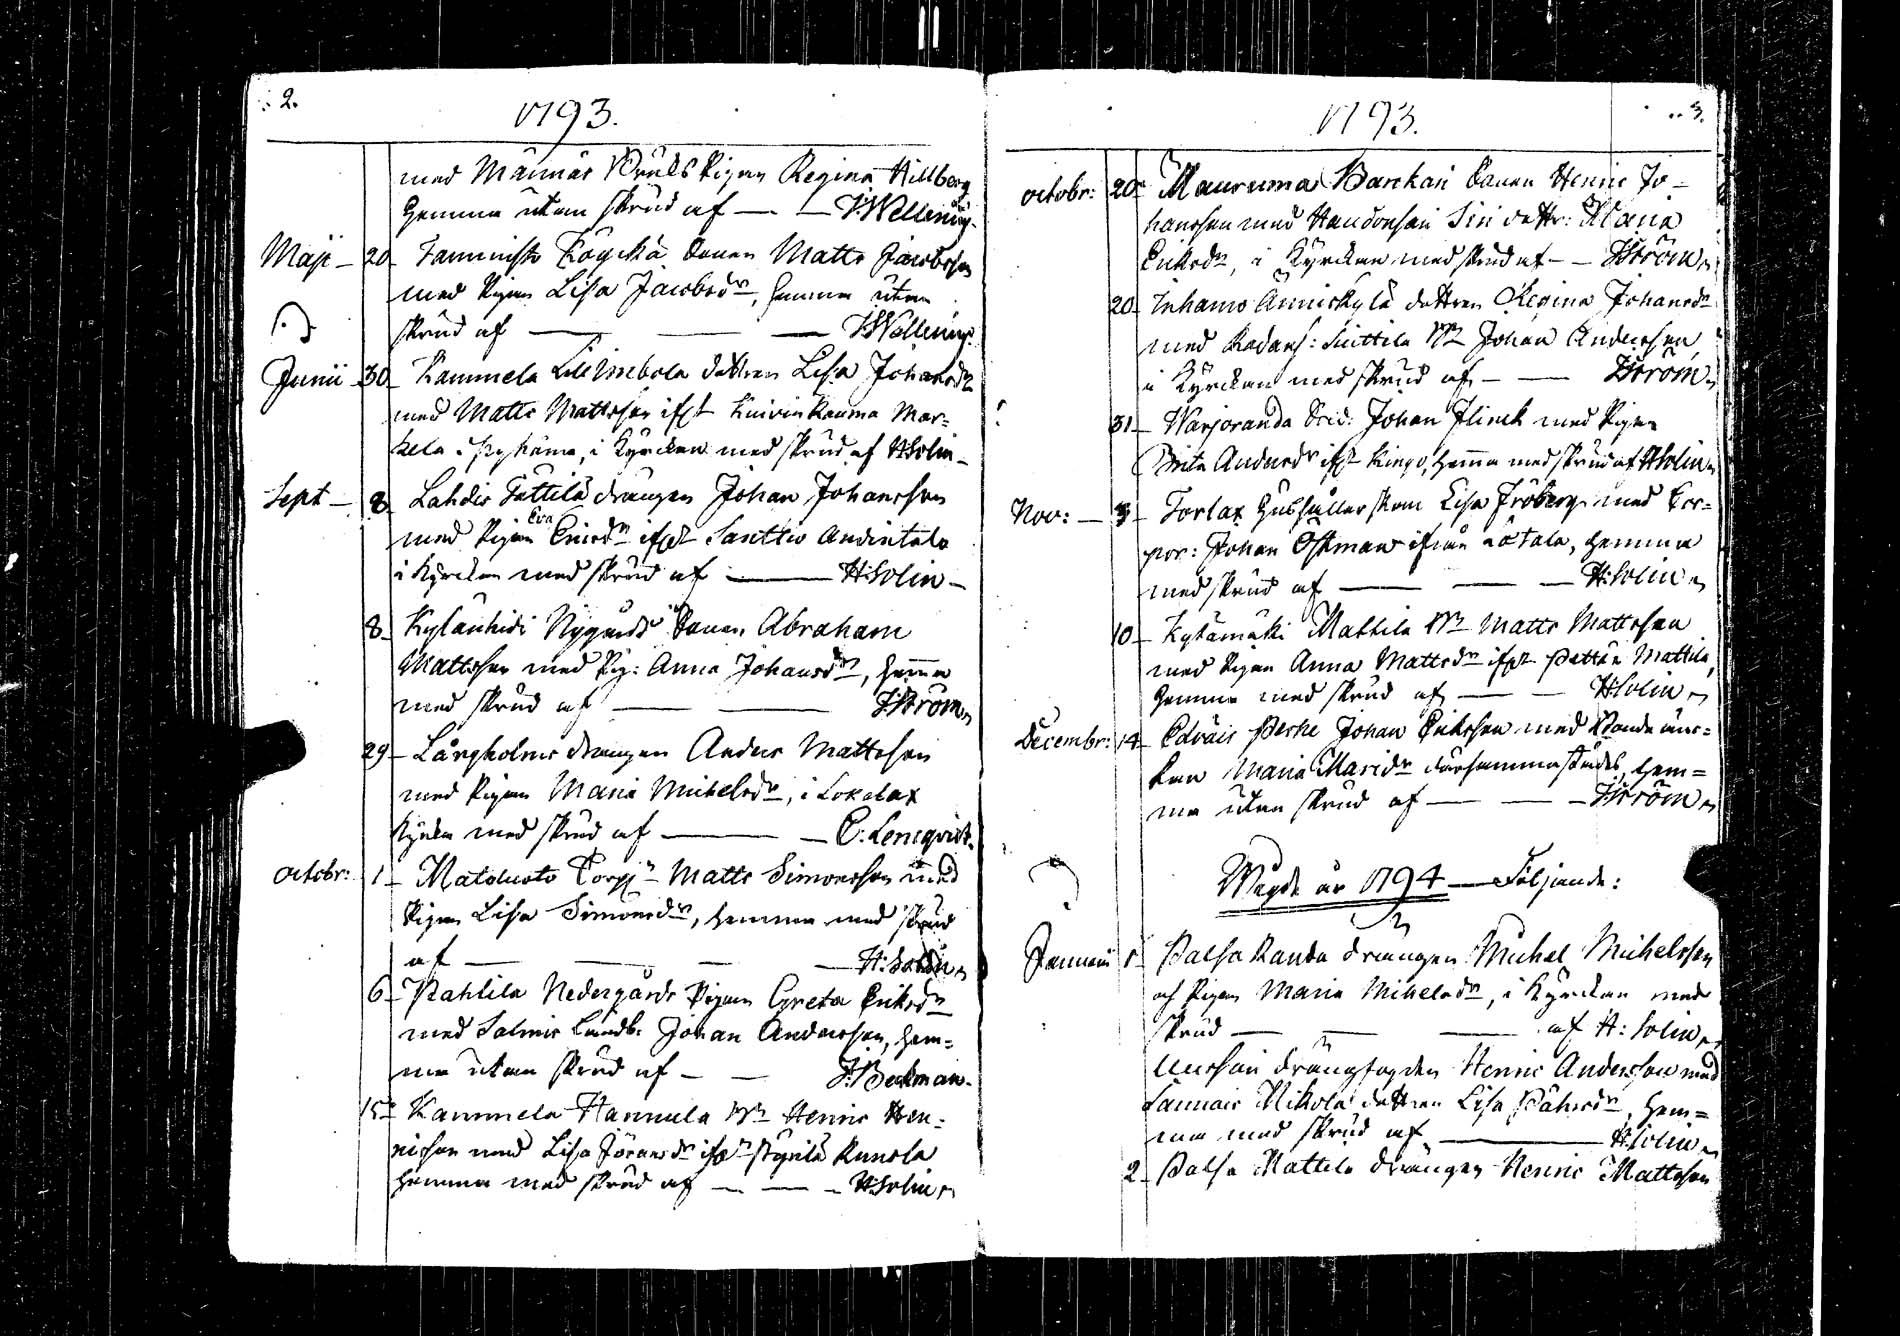 2.
1793.
med Männäs Bruks Pigan Regina Hillberg
hemma utan skrud af — — J:Wellening.
Maji — 20 — Tammisto Köyckä Sonen Matts Jacobsson
med Pigan Lisa Jacobsdr, hemma utan
skrud af — — — J:Wellening.
Junii — 30 — Kammela Lill Innebola dottren Lisa Johansdr
med Matts Mattsson ifrån Kuivinrauma Mar=
kela i Pyhäma, i Kyrckan med skrud af H:Solin —
Sept — 8 — Lahdis Tättilä drängen Johan Johansson
med Pigan Eva Ericsdr ifrån Santtio Andintalo
i Kyrckan med skrud af — H:Solin —
8 — Kylänhidi Nygårds Sonen Abraham
Mattsson med Pig: Anna Johansdr, hemma
med skrud af — — J:Ström
29 — Långholms drängen Anders Mattsson
med Pigan Maria Michelsdr, i Lokalax
Kyrka med skrud af — — C: Lencqvist.
Octobr: 1 — Torp: Matts Simonsson med
Pigan Lisa Simonsdr, hemma med skrud
af — — — H:Solin
6 — Pahtila Nedergårds Pigan Greta Eriksdr
med Salmis Landb: Johan Andersson, hem=
ma utan skrud af — — J:Beckman.
15 — Kammela Hannula Henric Hen=
ricsson med Lisa Göransdr ifrån Kunola
hemma med skrud af — — H:Solin
3.
1793.
Octobr: 20 — Mauruma Barckari Sonen Henric Jo=
hansson med Haudonsari dottr: Maria
Eriksdr, i Kyrckan med skrud af — J:Ström
20 — Inhamo Anniskylä dottren Regina Johansdr
med Johan Andersson,
i Kyrckan med skrud af — — J:Ström
31 — Warjoranda Johan Flinck med Pigan
Brita Andersdr ifrån Ringo, hemma med skrud af H:Solin
Nov: — 3 — Torlax Hushållerskan Lisa Fröberg med Cor=
por: Johan Östman ifrån Låtala, hemma
med skrud af — — — H:Solin
10 — Kylämäki Mattila Matts Mattsson
med Pigan Anna Mattsdr ifrån Mattila,
hemma med skrud af — — H:Solin
Decembr: 14 — Edväis Johan Eriksson med Bonde änc=
kan Maria dersammastädes, hem=
ma utan skrud af — — J:Ström
Wigde år 1794 — Följande:
Januarii 1 — Palsa Ranta drängen Michel Michelsson
och Pigan Maria Mikelsdr, i Kyrckan med
skrud — — — af H: Solin
drängfogden Henric Andersson med
Nikola dottren Lisa, hem=
ma med skrud af — H:Solin
2 — Palsa Mattila drängen Henric Mattsson